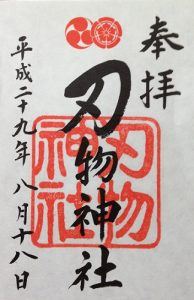 奉拝
刃物神社
刃物
神社
平成二十九年 八月十八日